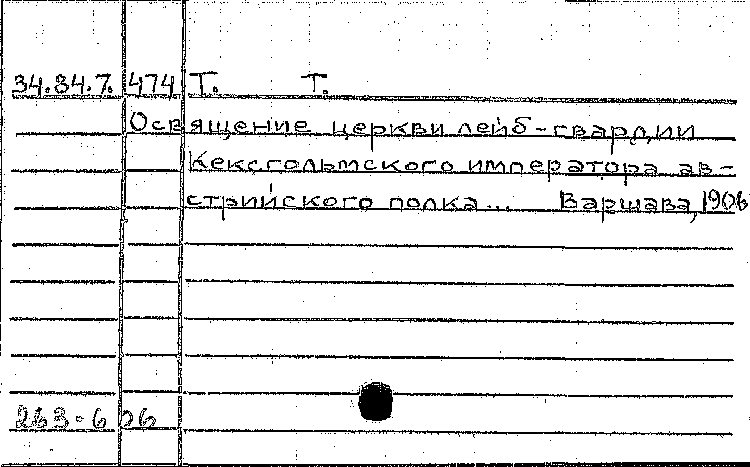 34.84.7. 474 Т. Т.
Освящение церкви лейб-гвардии
Кексгольмского императора ав-
стрийского полка... Варшава, 1906
263-6 06